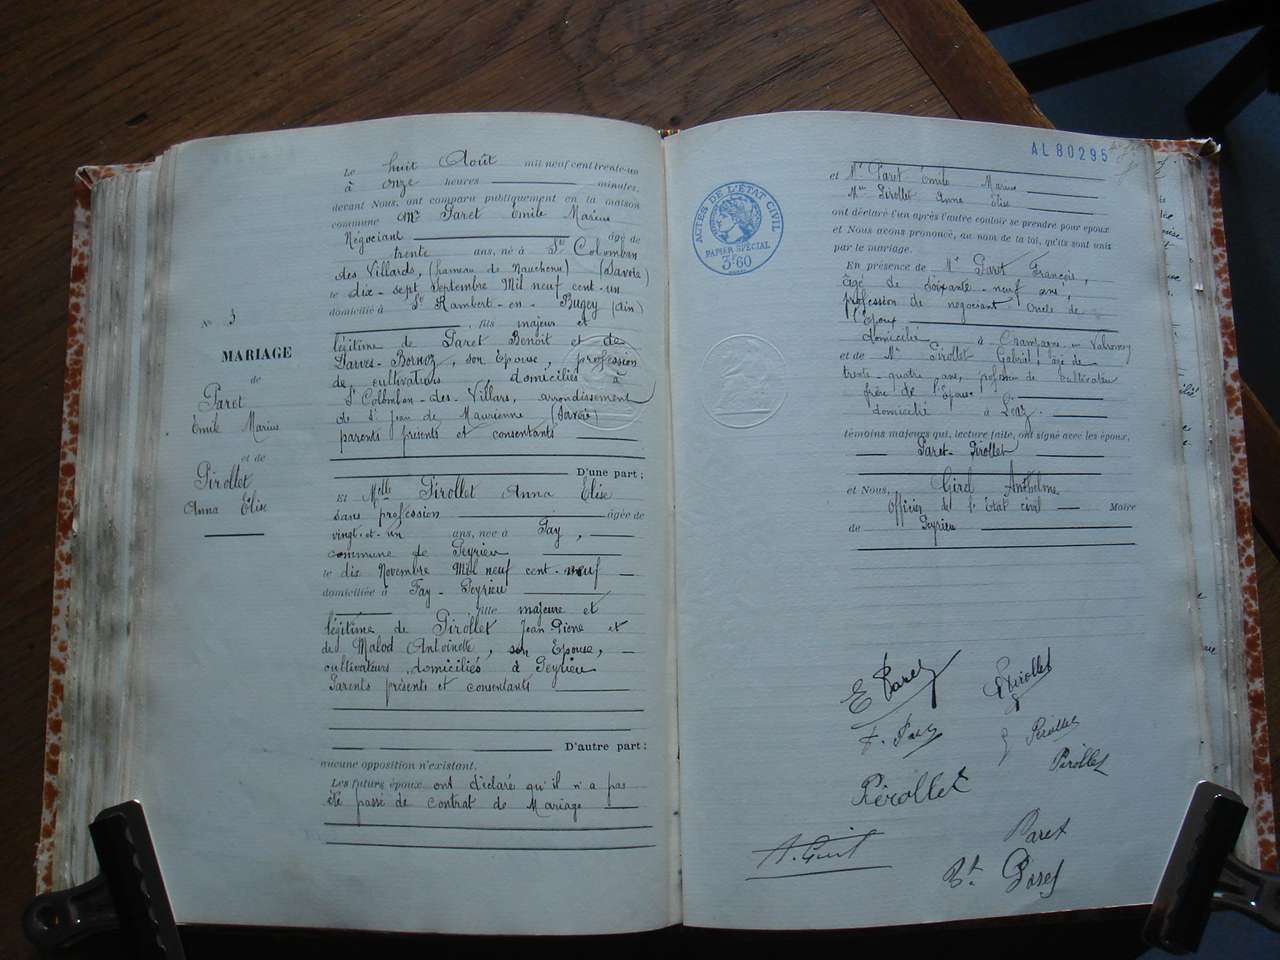 Nº 3
MARIAGE
de
Paret
Emile Marius
et de
Pirollet
Anna Elise
Le huit Août mil neuf cent trente-un
à onze heures minutes,
devant Nous, ont comparu publiquement en la maison
commune Mr Paret Emile Marius
Négociant âgé de
trente ans, né à St Colomban
des Villards, (hameau de ) (Savoie)
le dix-sept Septembre Mil neuf cent-un
domicilié à St Rambert-en-Bugey (Ain)
, fils majeur et
légitime de Paret Benoit et de
, son Epouse, profession
de cultivateurs, domiciliés à
St Colomban-des-Villars, arrondissement
de St Jean de Maurienne (Savoie)
parents présents et consentants
D'une part;
Et Melle Pirollet Anna Elise
sans profession âgée de
vingt-et-un ans, née à Fay,
commune de Peyrieu
le dix Novembre Mil neuf cent-neuf
domiciliée à Fay-Peyrieu
fille majeure et
légitime de Pirollet Jean Pierre et
de Malod Antoinette, son Epouse,
cultivateurs domiciliés à Peyrieu
Parents présents et consentants
D'autre part;
aucune opposition n'existant.
Les futurs époux ont déclaré qu'il n'a pas
été passé de Contrat de Mariage
AL 80295
ACTES DE L'ÉTAT CIVIL
PAPIER SPÉCIAL
3F60
et Mr Paret Emile Marius
Mlle Pirollet Anna Elise
ont déclaré l'un après l'autre vouloir se prendre pour époux
et Nous avons prononcé, au nom de la loi, qu'ils sont unis
par le mariage.
En présence de Mr Paret François,
âgé de soixante-neuf ans,
profession de négociant Oncle de
l'Epoux
domicilié à Champagne-en-Valromey
et de Mr Pirollet Gabriel, âgé de
trente-quatre ans, profession de cultivateur
frère de l'Epouse
domicilié à
témoins majeurs qui, lecture faite, ont signé avec les époux,
Paret-Pirollet
et Nous, Girel Anthelme
Officier de l'état civil Maire
de Peyrieu
E Paret
Pirollet
F. Paret
G Pirollet
Pirollet
Pérollet
Paret
Bt Paret